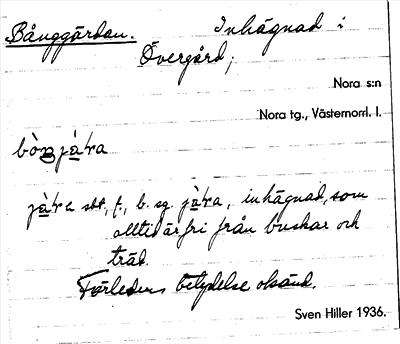 Bånggärdan. Inhägnad i
Övergård;
Nora s:n
Nora tg., Västernorrl. l.
sbt, f., b. sg. inhägnad, som
alltid är fri från buskar och
träd.
Förledens betydelse okänd.
Sven Hiller 1936.